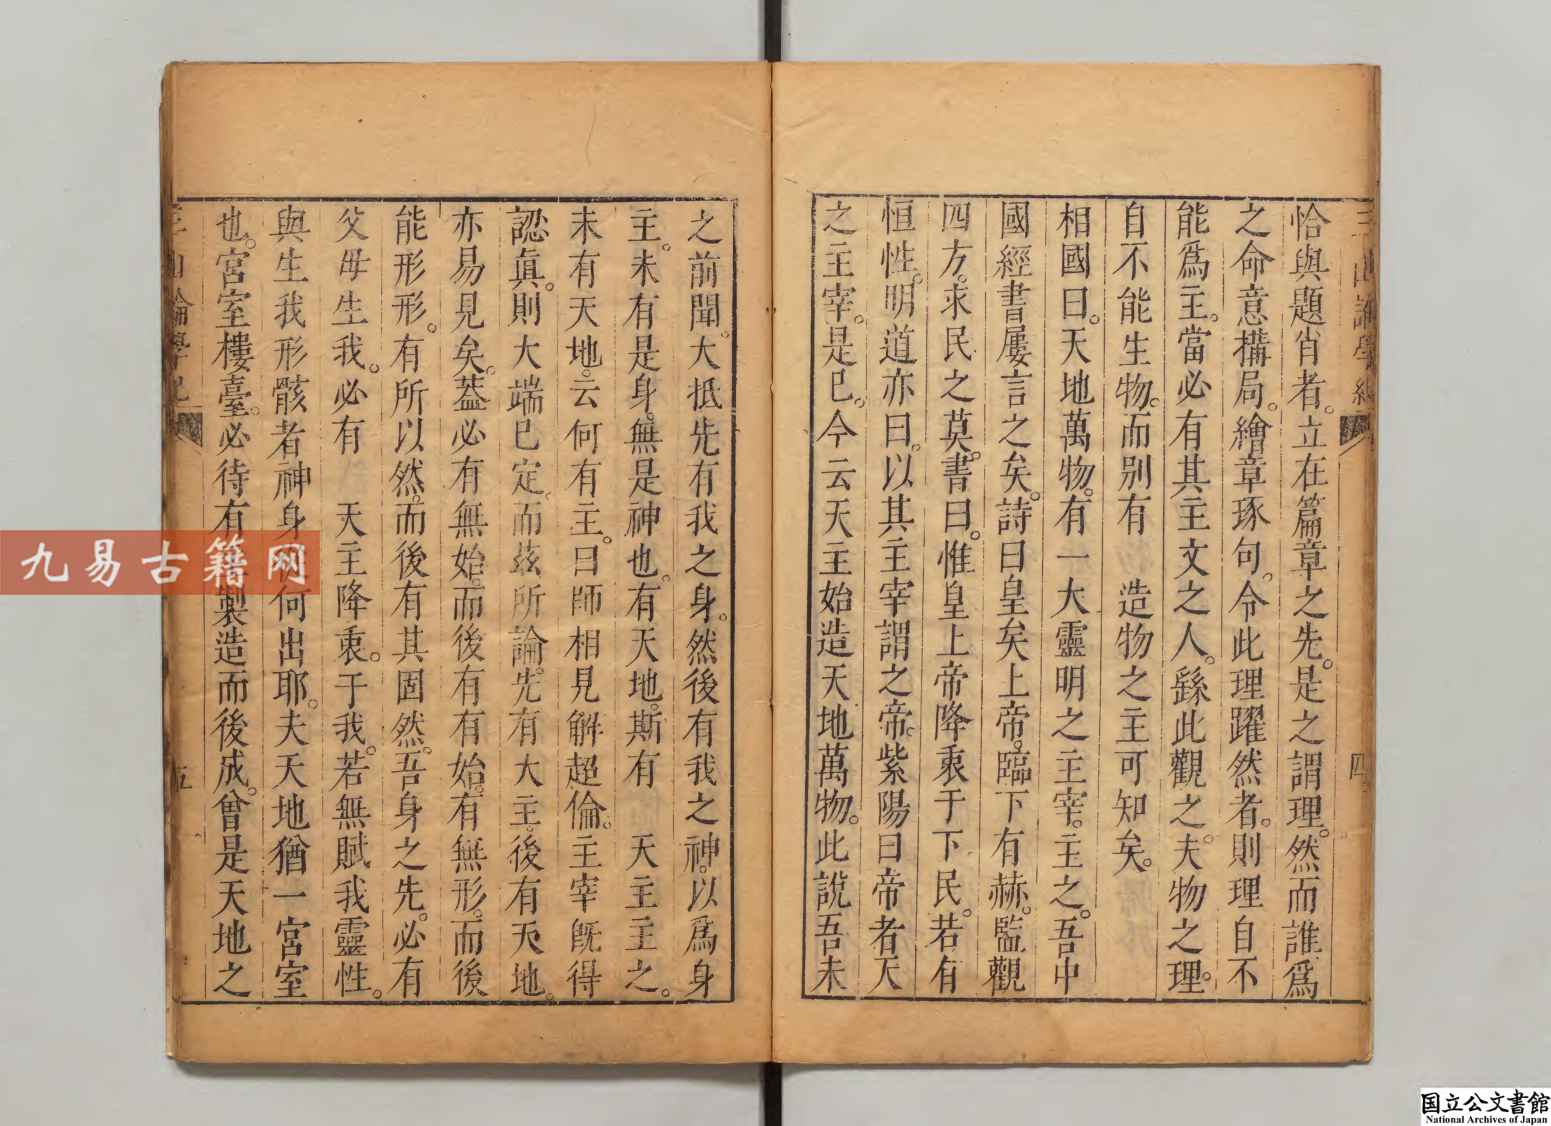 恰與題肖者。立在篇章之先。是之謂理。然而誰爲
之命意構局。繪章琢句。令此理躍然者。則理自不
能爲主。當必有其主文之人。繇此觀之。夫物之理。
自不能生物。而別有　造物之主可知矣。
相國曰。天地萬物。有一大靈明之主宰。主之。吾中
國經書屢言之矣。詩曰皇矣上帝。臨下有赫。監觀
四方。求民之莫。書曰。惟皇上帝降衷于下民。若有
恒性。明道亦曰。以其主宰謂之帝。紫陽曰帝者天
之主宰。是已。今云天主始造天地萬物。此說吾未
之前聞。大抵先有我之身。然後有我之神。以爲身
主。未有是身。無是神也。有天地。斯有　天主主之。
未有天地。云何有主。曰師相見解超倫。主宰既得
認眞。則大端已定。而茲所論。先有大主。後有天地。
亦易見矣。蓋必有無始。而後有有始。有無形。而後
能形形。有所以然。而後有其固然。吾身之先。必有
父母生我。必有　天主降衷于我。若無賦我靈性。
與生我形骸者神身何出耶。夫天地猶一宮室
也。宮室樓臺。必待有製造而後成。曾是天地之
三山論學紀
四
五
九易古籍网
国立公文書館
National Archives of Japan